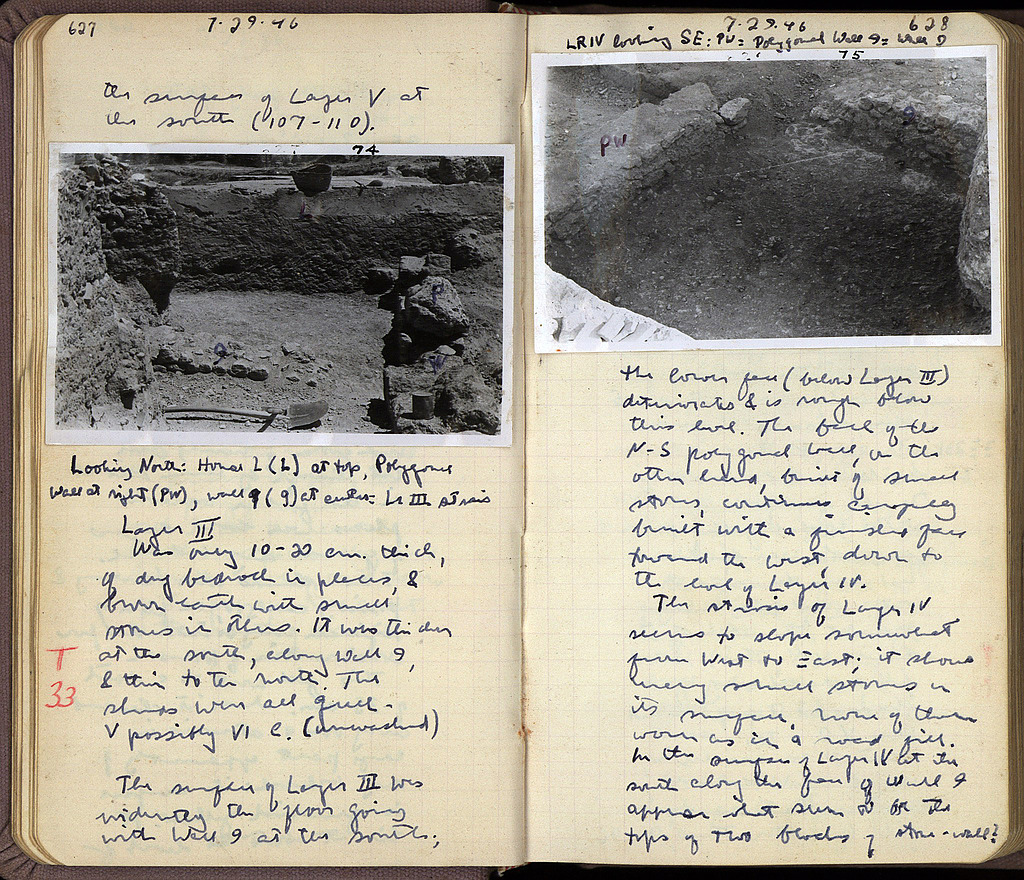 627
7-29-46
the surface of Layer V at
the south (107-110).
74
L
P
9
W
Looking North: House L (L) at top, Polygonal
Wall at right (PW), wall 9 (9) at center: Lr III strosis
Layer III
Was only 10-20 cm. thick,
of dry bedrock in places, &
brown earth with small
stones in others. It was thicker
at the south, along wall 9,
& thin to the north. The
sherds were all Greek -
V possibly VI C. (unwashed)
T
33
The surface of Layer III was
evidently the floor going
with Wall 9 at the south;
7-29-46
628
LR IV looking SE: PW = Polygonal Wall 9 = Wall 9
75
PW
9
the lower face (below Layer III)
deteriorates & is rough below
this level. The face of the
N-S polygonal wall, on the
other hand, built of small
stones, continues carefully
built with a finished face
toward the west, down to
the level of Layer IV.
The strosis of Layer IV
seems to slope somewhat
from West to East; it shows
many small stones in
its surface, none of them
worn as in a road fill.
In the surface of Layer IV at the
south along the face of Wall 9
appear what seem to be the
tops of two blocks of stone - wall?